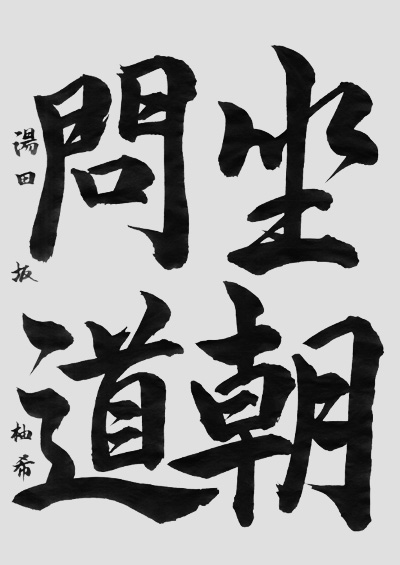 坐朝
問道
湯田坂柚希